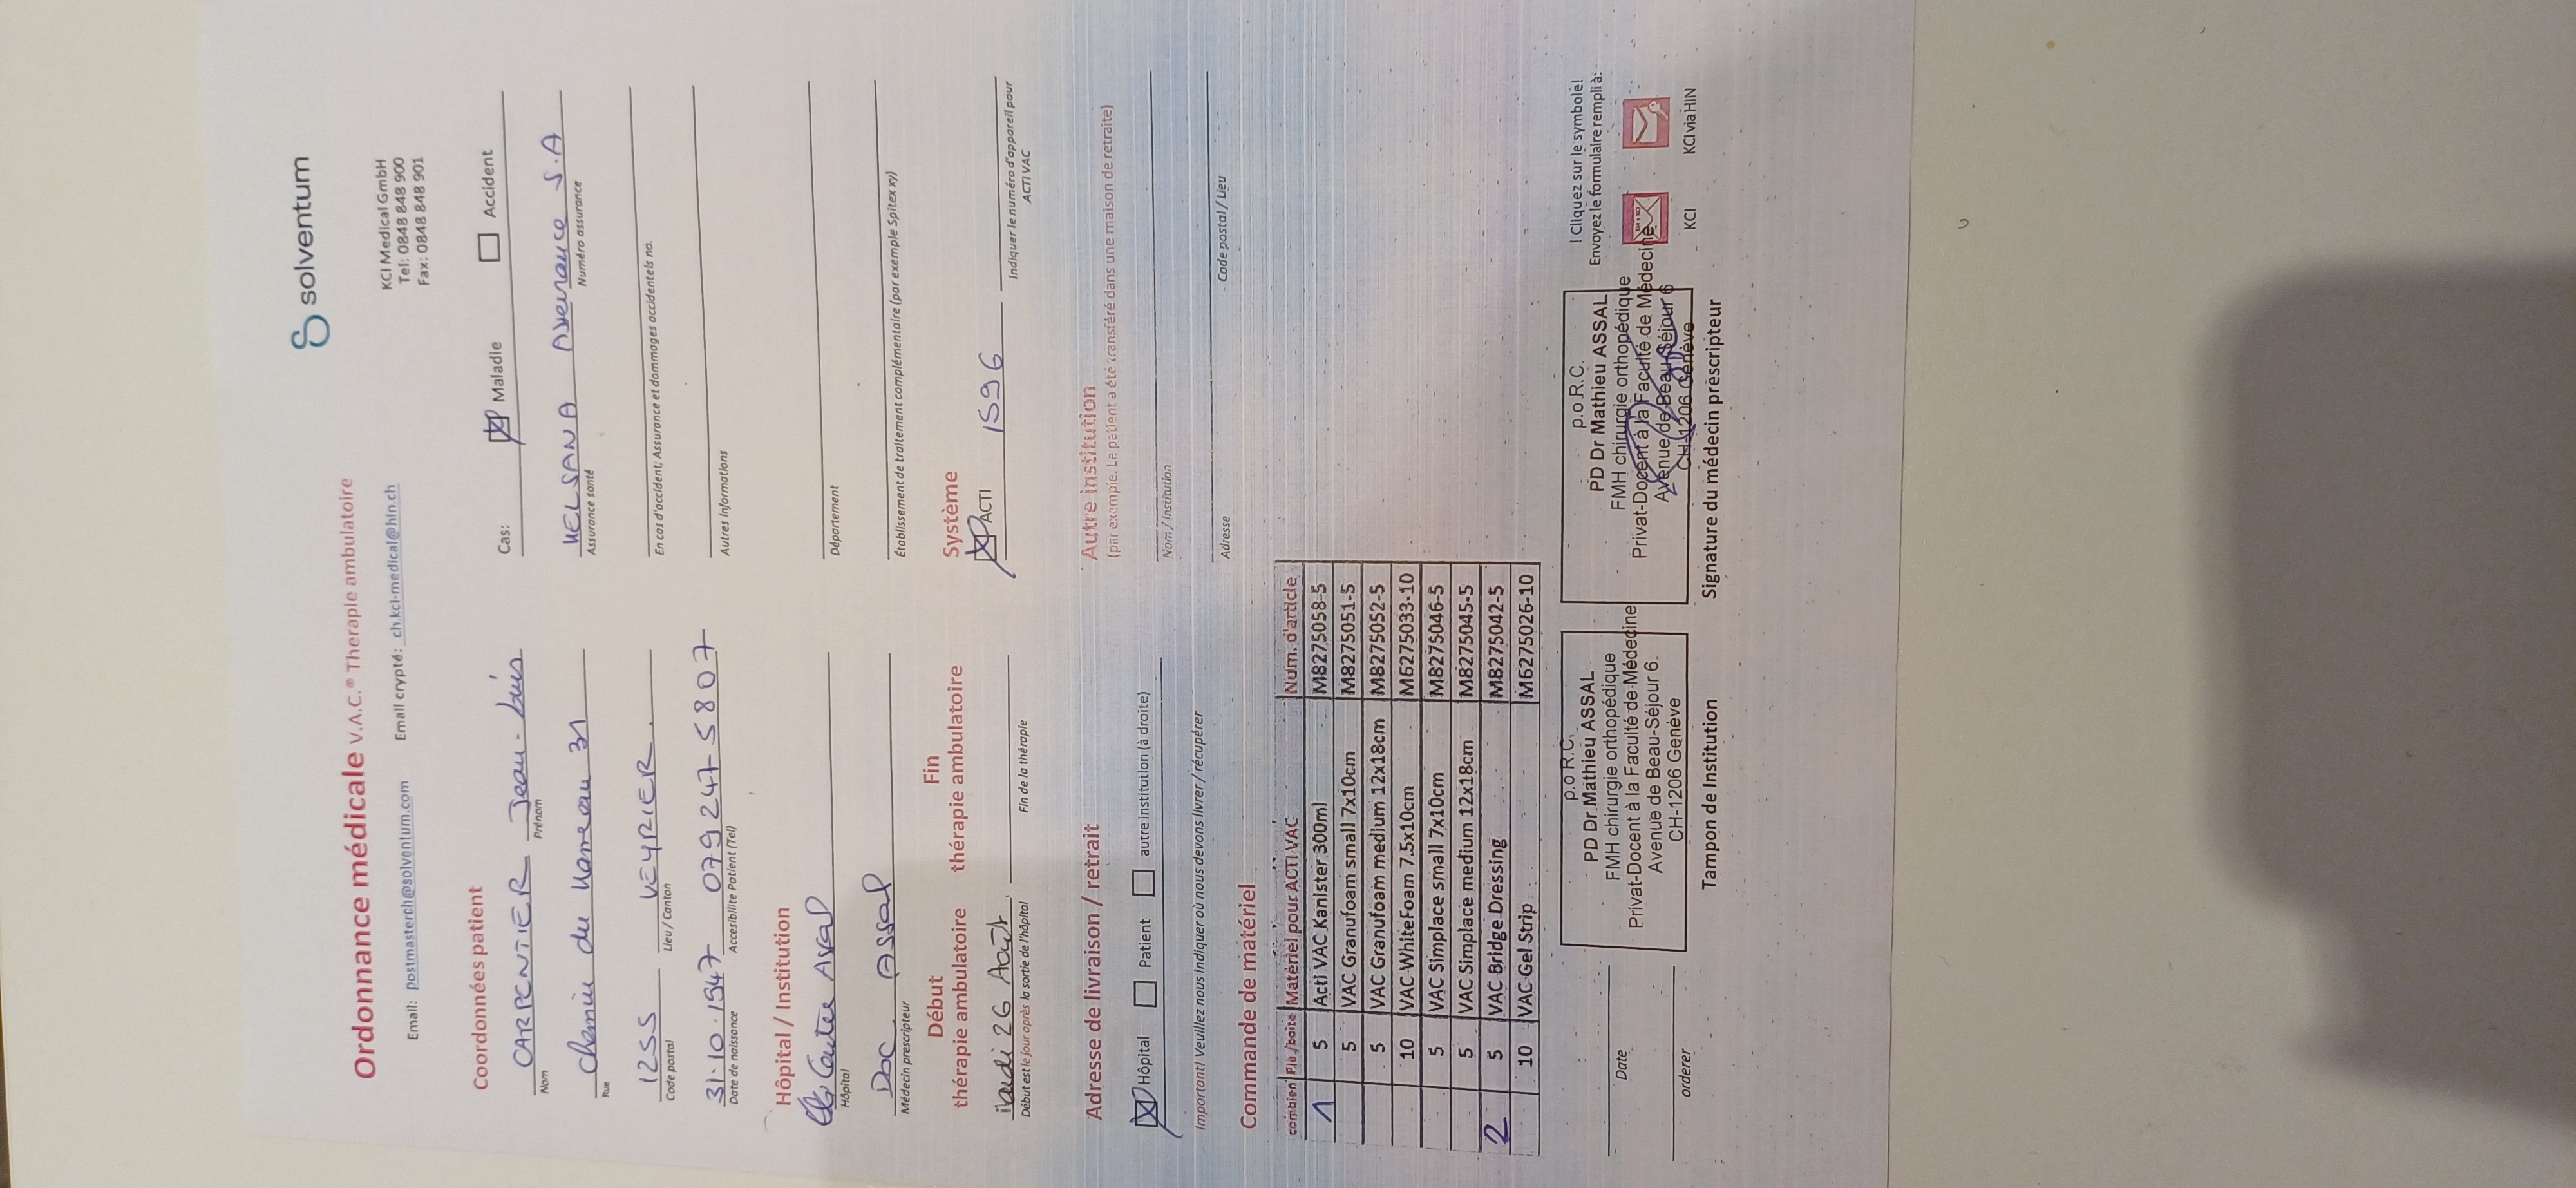 solventum
Ordonnance médicale V.A.C.® Therapie ambulatoire
KCI Medical GmbH
Tel: 0848 848 900
Fax: 0848 848 901
Email: postmasterch@solventum.com Email crypté: ch.kci-medical@hin.ch
Coordonnées patient
Cas: Maladie Accident
CARPENTIER Jean-Louis
Nom Prénom
HELSANA Assurance S.A
Assurance santé Numéro assurance
Chemin du Hameau 31
Rue
En cas d'accident; Assurance et dommages accidentels no.
1255 VEYRIER
Code postal Lieu / Canton
Autres Informations
31.10.1947 079 247 58 07
Date de naissance Accesibilite Patient (Tel)
Hôpital / Institution
Centre Assal
Hôpital
Département
Doc. Assal
Médecin prescripteur
Établissement de traitement complémentaire (par exemple Spitex xy)
Début
thérapie ambulatoire
Fin
thérapie ambulatoire
Système
26 Août
Début est le jour après la sortie de l'hôpital
Fin de la thérapie
ACTI 1596
Indiquer le numéro d'appareil pour
ACTI VAC
Adresse de livraison / retrait
Hôpital Patient autre institution (à droite)
Important! Veuillez nous indiquer où nous devons livrer / récupérer
Autre institution
(par exemple. Le patient a été transféré dans une maison de retraite)
Nom / Institution
Adresse Code postal / Lieu
Commande de matériel
combien Pie/boite Matériel pour ACTI VAC Num. d'article
1 5 Acti VAC Kanister 300ml M8275058-5
5 VAC Granufoam small 7x10cm M8275051-5
5 VAC Granufoam medium 12x18cm M8275052-5
10 VAC WhiteFoam 7.5x10cm M6275033-10
5 VAC Simplace small 7x10cm M8275046-5
5 VAC Simplace medium 12x18cm M8275045-5
2 5 VAC Bridge Dressing M8275042-5
10 VAC Gel Strip M6275026-10
Date
orderer
p.o R.C.
PD Dr Mathieu ASSAL
FMH chirurgie orthopédique
Privat-Docent à la Faculté de Médecine
Avenue de Beau-Séjour 6
CH-1206 Genève
Tampon de Institution
p.o R.C.
PD Dr Mathieu ASSAL
FMH chirurgie orthopédique
Privat-Docent à la Faculté de Médecine
Avenue de Beau-Séjour 6
CH-1206 Genève
Signature du médecin prescripteur
! Cliquez sur le symbole!
Envoyez le formulaire rempli à:
KCI KCI via HIN